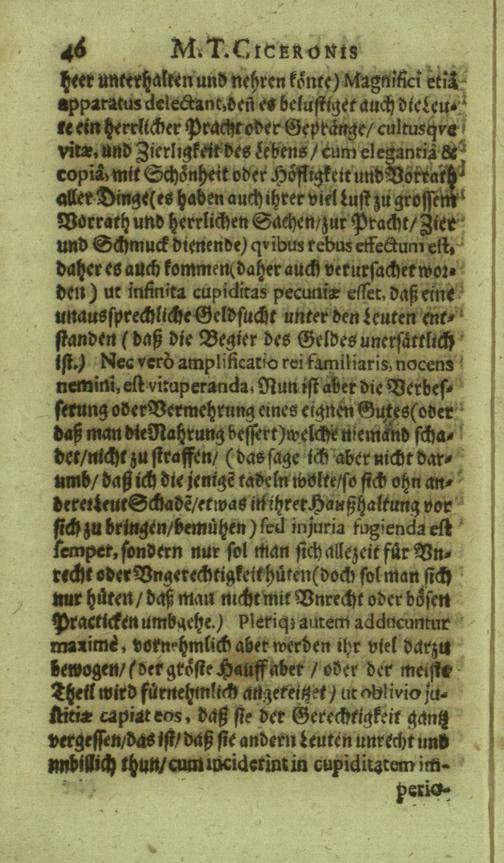 46 M. T. CICERONIS
heer unterhalten und nehren könte) Magnifici etiã
apparatus delectant, deñ es belustiget auch die Leu-
te ein herrlicher Pracht oder Gepränge/ cultusqve
vitæ, und Zierligkeit des Lebens/ cum elegantiâ &
copiâ, mit Schönheit oder Höffligkeit und Vorrath
aller Dinge (es haben auch ihrer viel Lust zu grossem
Vorrath und herrlichen Sachen/ zur Pracht/ Zier
und Schmuck dienende) qvibus rebus effectum est,
daher es auch kommen (daher auch verursachet wor-
den) ut infinita cupiditas pecuniæ esset, daß eine
unaussprechliche Geldsucht unter den Leuten ent-
standen (daß die Begier des Geldes unersättlich
ist.) Nec verò amplificatio rei familiaris, nocens
nemini, est vituperanda, Nun ist aber die Verbes-
serung oder Vermehrung eines eignen Gutes (oder
daß man die Nahrung bessert) welche niemand scha-
det/ nicht zu straffen/ (das sage ich aber nicht dar-
umb/ daß ich die jenigẽ tadeln wolte/ so sich ohn an-
derer Leut Schadẽ/ etwas in ihrer Haußhaltung vor
sich zu bringen/ bemühen) sed injuria fugienda est
semper, sondern nur sol man sich allezeit für Vn-
recht oder Vngerechtigkeit hüten (doch sol man sich
nur hüten/ daß man nicht mit Vnrecht oder bösen
Practicken umbgehe.) Pleriq; autem adducuntur
maximè, vornehmlich aber werden ihr viel darzu
bewogen/ (der gröste Hauff aber / oder der meiste
Theil wird fürnehmlich angereitzet) ut oblivio ju-
stitiæ capiat eos, daß sie der Gerechtigkeit gantz
vergessen/ das ist/ daß sie andern Leuten unrecht und
unbillich thun/ cum inciderint in cupiditatem im-
perio-